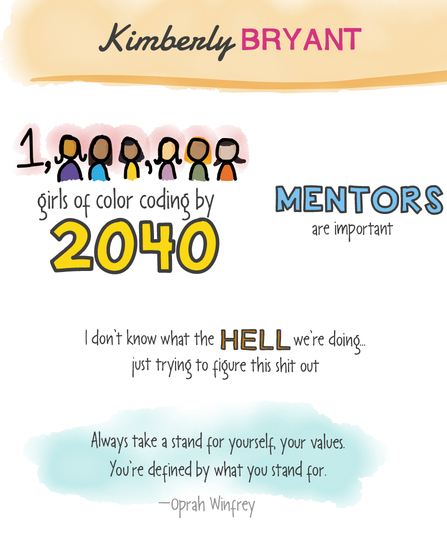 Kimberly BRYANT
1,
,
girls of color coding by
2040
MENTORS
are important
I don't know what the HELL we're doing...
just trying to figure this shit out
Always take a stand for yourself, your values.
You're defined by what you stand for.
—Oprah Winfrey